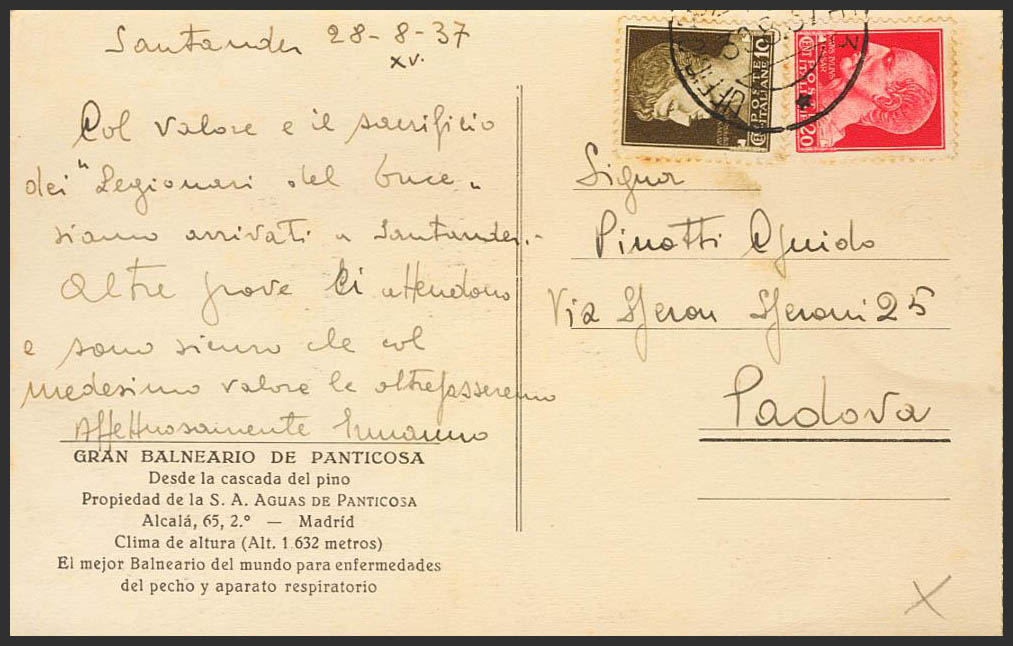 Santander 28-8-37
XV.
Col valore e il sacrificio
dei "Legionari del Duce"
siamo arrivati a Santander.-
Altre prove ci attendono
e sono sicuro che col
medesimo valore le oltrepasseremo
Affettuosamente Ermanno
GRAN BALNEARIO DE PANTICOSA
Desde la cascada del pino
Propiedad de la S. A. AGUAS DE PANTICOSA
Alcalá, 65, 2.º — Madrid
Clima de altura (Alt. 1.632 metros)
El mejor Balneario del mundo para enfermedades
del pecho y aparato respiratorio
POSTE ITALIANE
10
20
Signor
Pinotti Guido
Via Speron Speroni 25
Padova
X